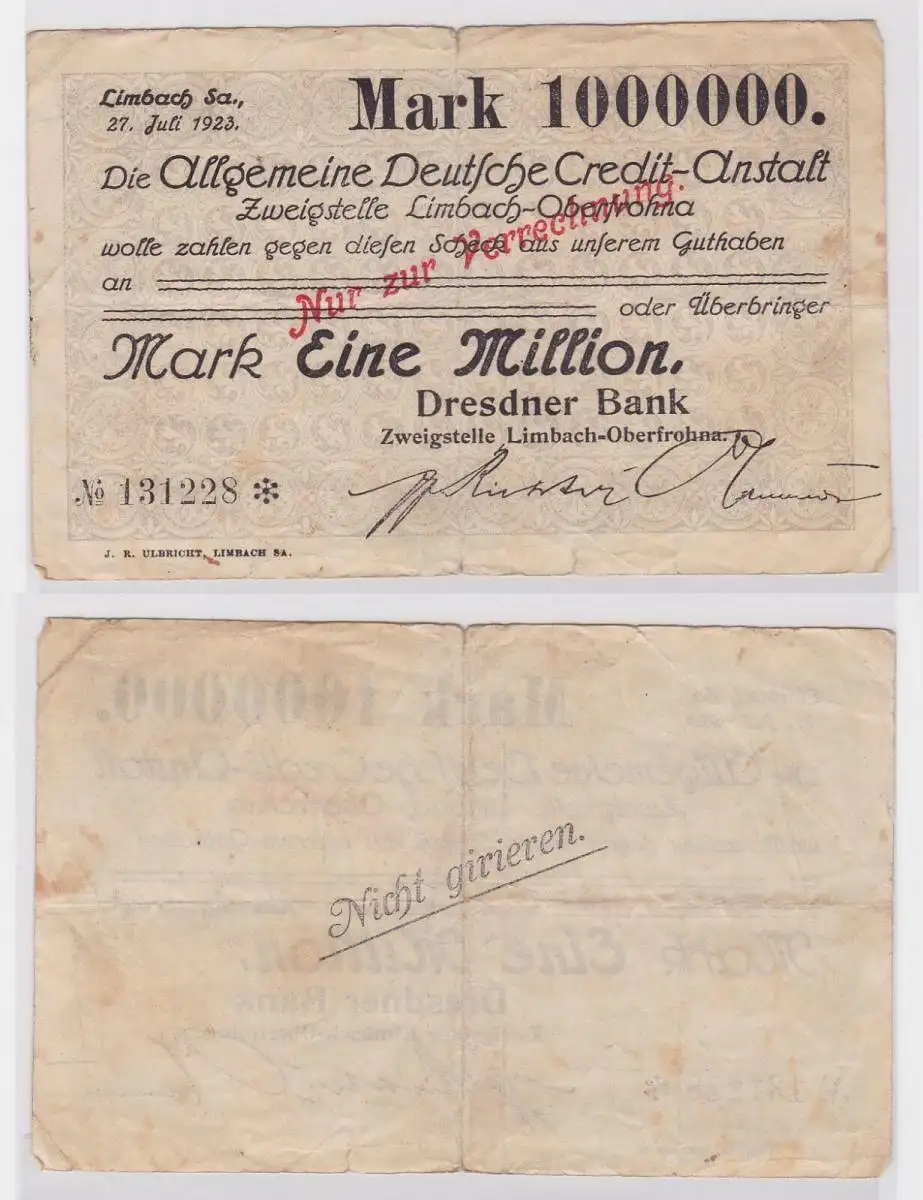 Limbach Sa.,
27. Juli 1923.
Mark 1000000.
Die Allgemeine Deutsche Credit-Anstalt
Zweigstelle Limbach-Oberfrohna
wolle zahlen gegen diesen Scheck aus unserem Guthaben
an
oder Überbringer
Nur zur Verrechnung.
Mark Eine Million.
Dresdner Bank
Zweigstelle Limbach-Oberfrohna.
№ 131228 *
J. R. ULBRICHT, LIMBACH SA.
Nicht girieren.